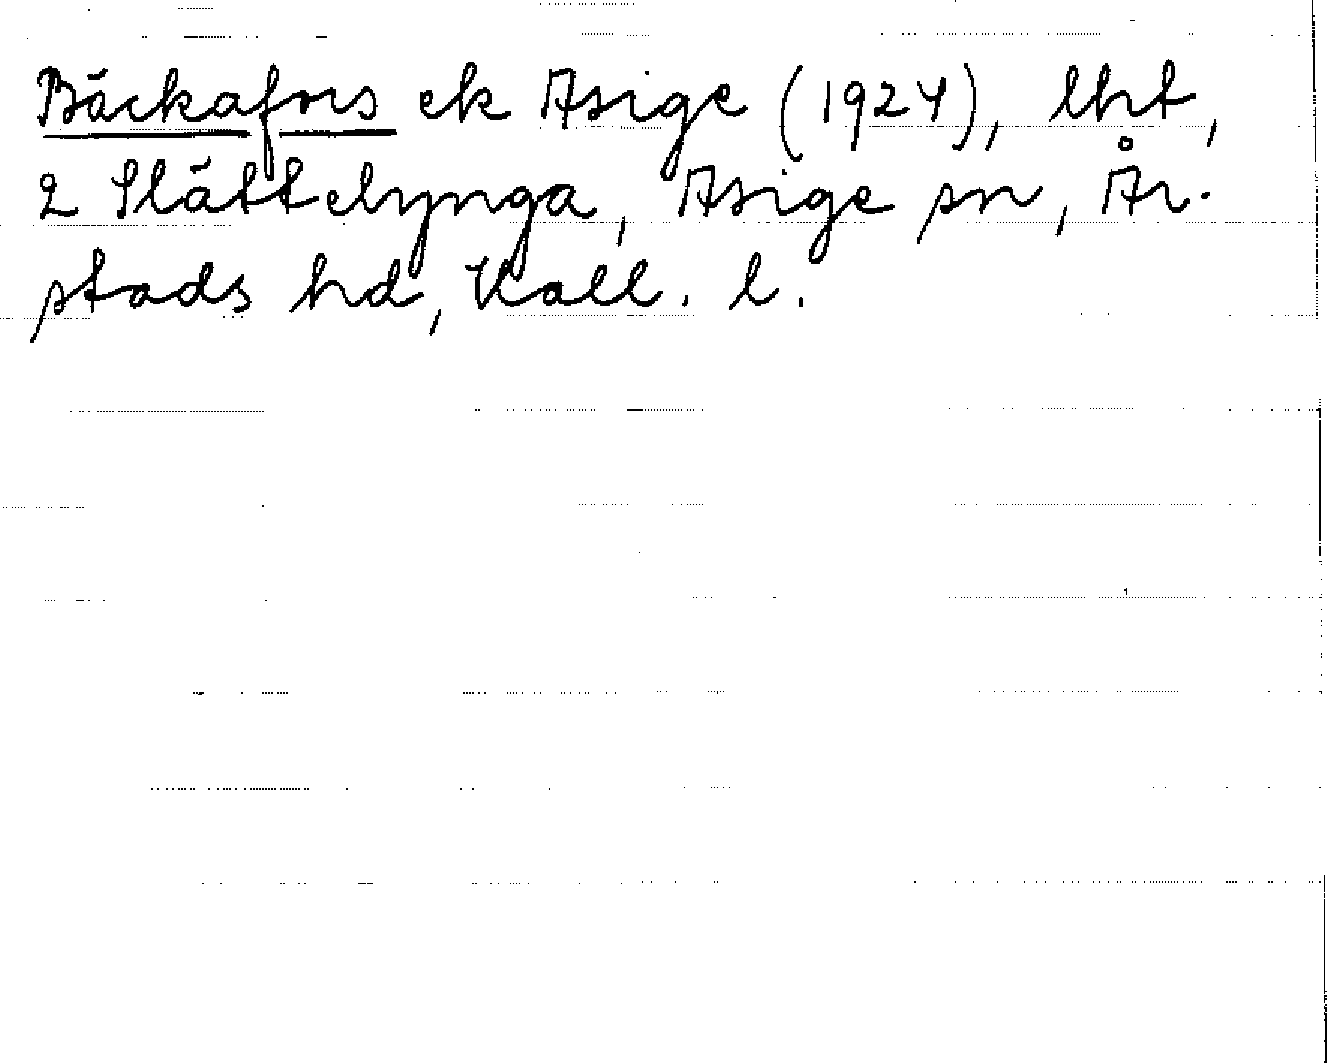 Bäckafors ek Asige (1924), lht,
2 Slättelynga, Asige sn, År-
stads hd, Hall. l.